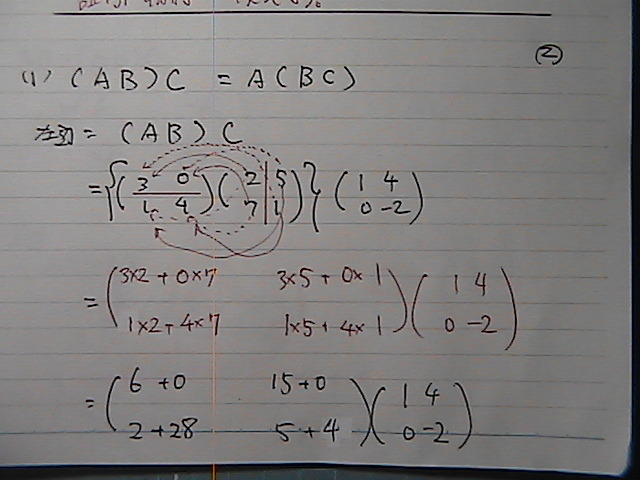 (2)
(1) (AB)C = A(BC)
左辺 = (AB)C
= {(3 0 1 4)(2 5 7 1)}(1 4 0 -2)
= (3×2+0×7 3×5+0×1 1×2+4×7 1×5+4×1)(1 4 0 -2)
= (6+0 15+0 2+28 5+4)(1 4 0 -2)